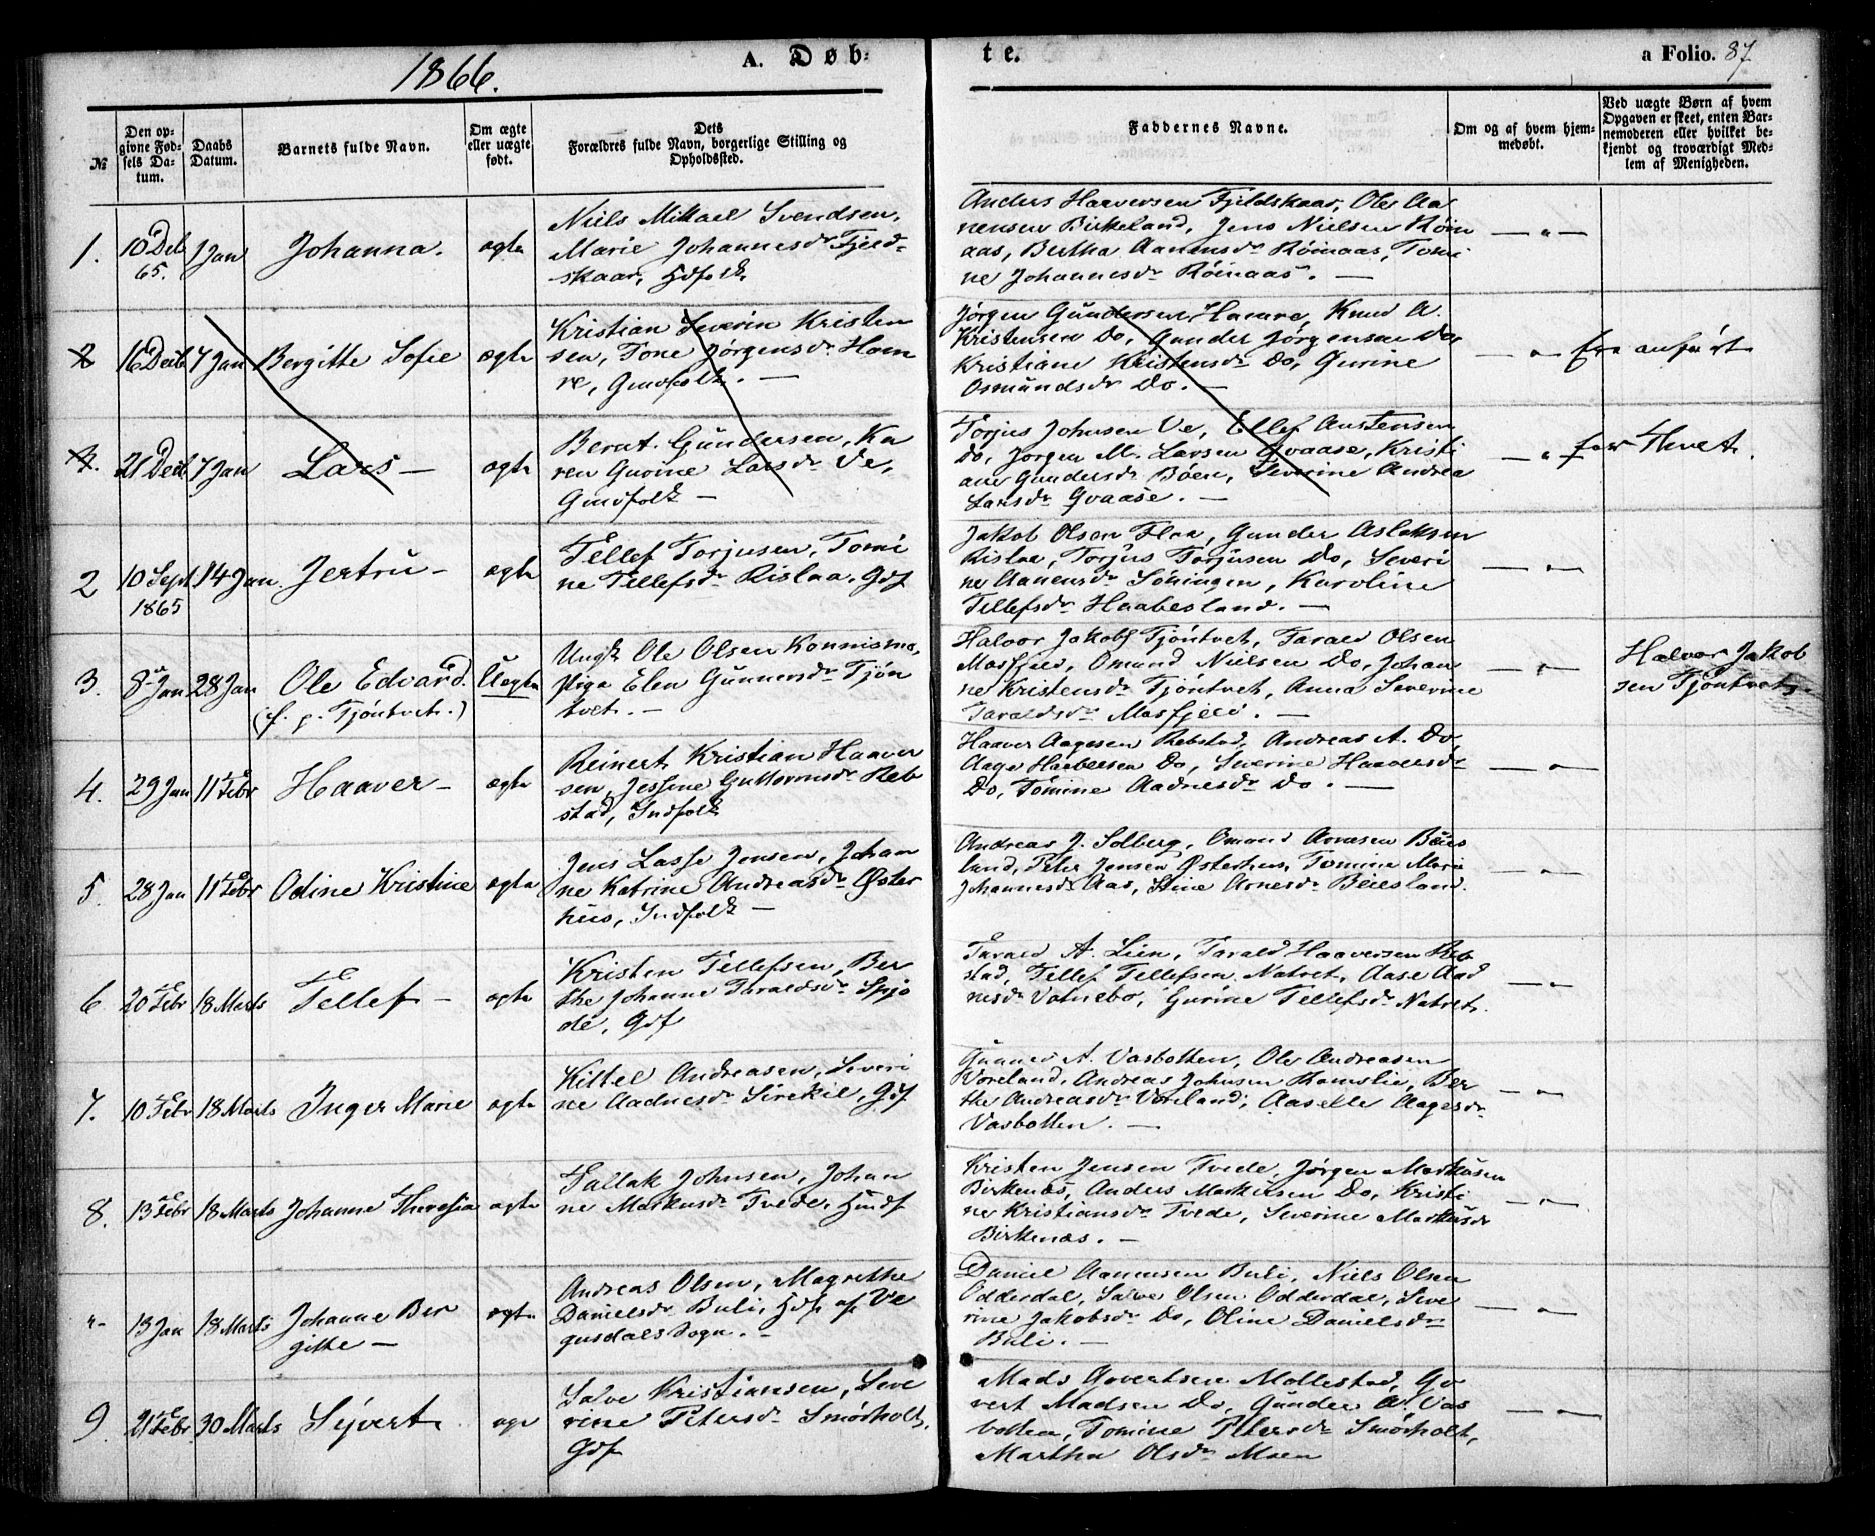 1866.
A. Døb-
te.
a Folio. 87
№
Den op-
givne Fød-
sels Da-
tum.
Daabs
Datum.
Barnets fulde Navn.
Om ægte
eller uægte
født.
Dets
Forældres fulde Navn, borgerlige Stilling og
Opholdssted.
Faddernes Navne.
Om og af hvem hjem-
medøbt.
Ved uægte Børn af hvem
Opgaven er skeet, enten Bar-
nemoderen eller hvilket be-
kjendt og troværdigt Med-
lem af Menigheden.
1.
10 Deb
65.
1 Jan
Johanna.
ægte
Niels Mikael Svendsen,
Marie Johannesdr Fjeld-
skaar, Hdfolk
Anders Haaversen Fjeldskaar, Ole Aa-
nensen Birkeland, Jens Nielsen Röin
aas, Bertha Aanensdr Röinaas, Tomi
ne Johannesdr Röinaas. —
— " —
2
16 Decb
7 Jan
Bergitte Sofie
ægte
Kristian Severin Kristen
sen, Tone Jørgensdr Hom
re, Gmdfolk. —
Jørgen Gundersen Homre, Knud A.
Kristensen Do, Gunder Jørgensen Do
Kristiane Kristensdr Do, Gurine
Osmundsdr Do. —
— " —
før anført
3.
21 Decb
7 Jan
Lars —
ægte
Bernt Gundersen, Ka
ren Gurine Larsdr Ve,
Gmdfolk —
Torjus Johnsen Ve, Ellef Anstensen
Do, Jørgen M. Larsen Gvaase, Kristi
ane Gundersdr Böen, Severine Andrea
Larsdr Gvaase. —
— " —
2
10 Sept
1865
14 Jan.
Jertru —
ægte
Tellef Torjusen, Tomi
ne Tellefsdr Rislaa, Gdf
Jakob Olsen Flaa, Gunder Aslaksen
Rislaa, Torjus Torjusen Do, Severi
ne Aanensdr Söningen, Karoline
Tellefsdr Haabesland. —
— " —
3.
8 Jan
28 Jan
Ole Edvard.
(f. p. Tjöntvet.)
Uægte
Ungk Ole Olsen Konnismo,
Pige Elen Gunnersdr Tjön
tvet. —
Halvor Jakobs Tjöntvet, Tarald Olsen
Mosfjeld, Omund Nielsen Do, Johan
ne Kristensdr Tjöntvet, Anna Severine
Taraldsdr Mosfjeld. —
— " —
Halvor Jakob
sen Tjöntvet.
4.
29 Jan
11 Febr
Haaver —
ægte
Reinert Kristian Haaver
sen, Jessine Guttormsdr Reb
stad, Indfolk
Haaver Aagesen Rebstad, Andreas A. Do,
Aage Do, Severine Haaversdr
Do, Tomine Aadnesdr Do. —
— " —
5.
28 Jan
11 Febr
Odine Kristine
ægte
Jens Lasse Jensen, Johan
ne Katrine Andreasdr Øster
hus, Indfolk —
Andreas J. Solberg, Omund Arnesen Beies
land, Peter Jensen Østerhus, Tomine Marie
Johannesdr Aas, Stine Arnesdr Beiesland.
— " —
6.
20 Febr
18 Marts
Tellef —
ægte
Kristen Tellefsen, Ber
the Johanne Taraldsdr Spjo
de, Gdf
Tarald A. Lien, Tarald Haaversen Reb
stad, Tellef Tellefsen Natvet, Aase Aad
nesdr Vatnebo, Gurine Tellefsdr Natvet.
— " —
7.
10 Febr
18 Marts
Inger Marie
ægte
Kittel Andreasen, Severi
ne Aadnesdr Sirekil, Gdf
A. Vasbotten, Ole Andreasen
Voreland, Andreas Johnsen Ramslie, Ber
the Andreasdr Voreland, Aaselle Aagesdr
Vasbotten. —
— " —
8.
13 Febr
18 Marts
Johanne Theresia
ægte
Tallak Johnsen, Johan
ne Markusdr Tvede, Hmdf
Kristen Jensen Tvede, Jørgen Markusen
Birkenæs, Anders Markusen Do, Kristi
ne Kristiansdr Tvede, Severine Markusdr
Birkenæs. —
— " —
"
13 Jan
18 Marts
Johanne Ber
gitte —
ægte
Andreas Olsen, Magrethe
Danielsdr Buli, Hdf af Ve
gusdals Sogn. —
Daniel Aanensen Buli, Niels Olsen
Odderdal, Salve Olsen Odderdal, Seve
rine Jakobsdr Do, Oline Danielsdr
Buli. —
— " —
9.
21 Febr
30 Marts
Sejvert
ægte
Salve Kristiansen, Seve
rine Petersdr Smörholt,
Gdf
Mads Govertsen Mollestad, Go
vert Madsen Do, Gunder A. Vas
botten, Tomine Petersdr Smörholt,
Martha Olsdr Moen
— " —